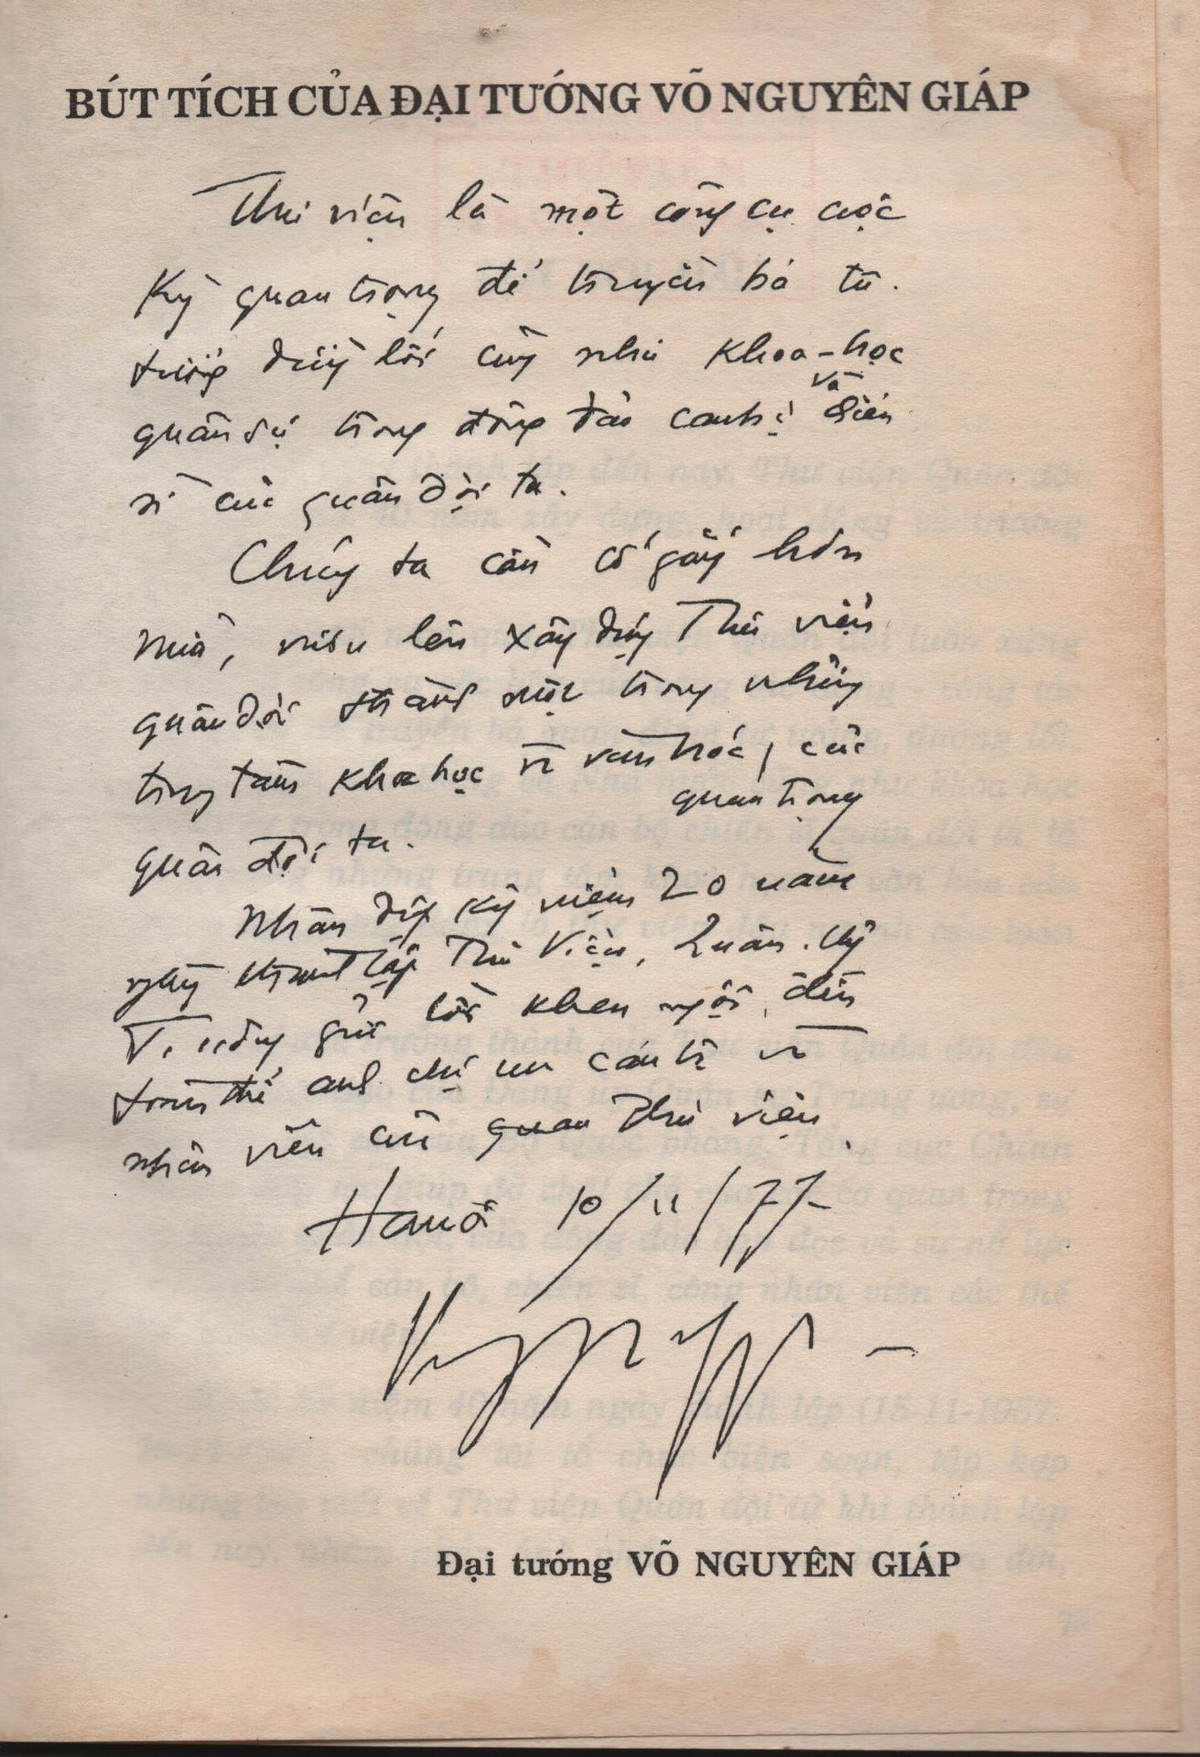 BÚT TÍCH CỦA ĐẠI TƯỚNG VÕ NGUYÊN GIÁP
Thư viện là một công cụ cực
kỳ quan trọng để truyền bá tư
tưởng đường lối cũng như khoa-học
quân sự trong đông đảo cán bộ và chiến
sĩ của quân đội ta.
Chúng ta cần cố gắng hơn
nữa, vươn lên xây dựng Thư viện
quân đội thành một trong những
trung tâm khoa học và văn hóa, của
quan trọng
quân đội ta.
Nhân dịp kỷ niệm 20 năm
ngày thành lập Thư Viện, Quân ủy
T. ương gửi lời khen ngợi đến
toàn thể anh chị em cán bộ và
nhân viên cơ quan Thư viện.
Hanoi 10/11/77
Đại tướng VÕ NGUYÊN GIÁP